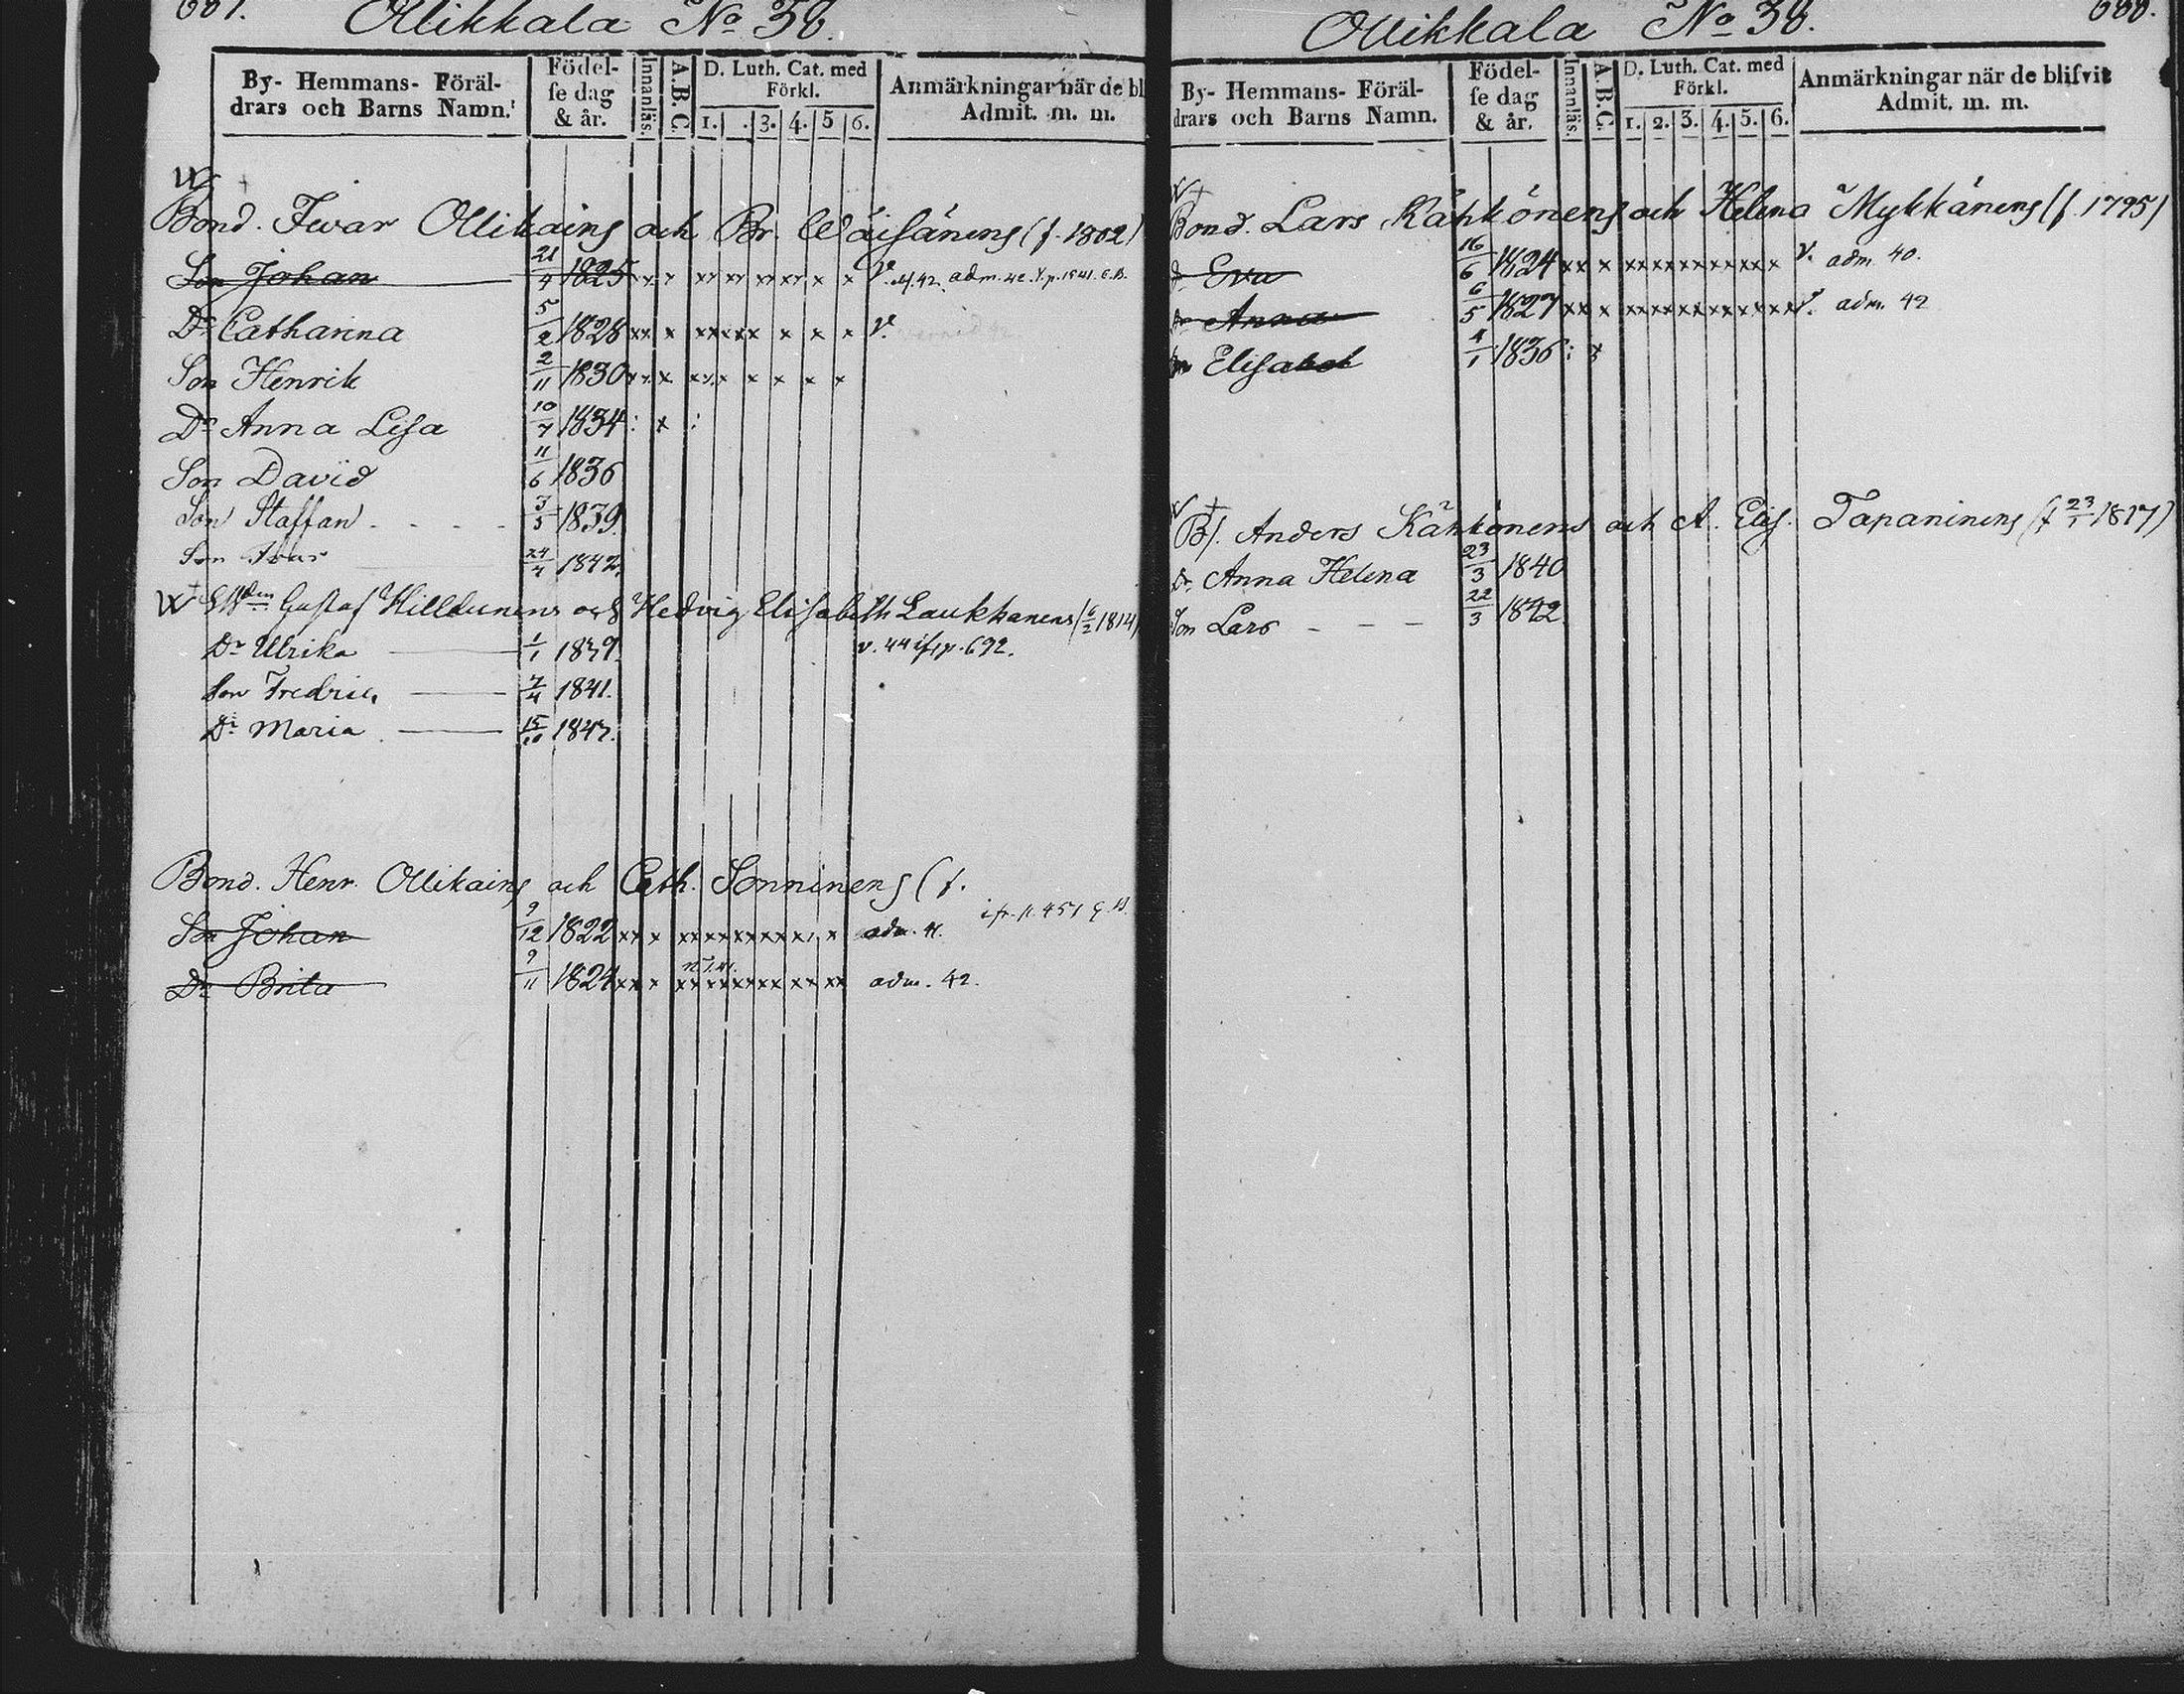 Ollikkala No 38.
By- Hemmans- Föräl-
drars och Barns Namn.
Födel-
se dag
& år.
Innanläs.
A.B.C.
D. Luth. Cat. med
Förkl.
1. 3. 4. 5 6.
Anmärkningar när de bl
Admit. m. m.
Bond. Ivar Ollikains och Br. Wäisänens (f. 1802)
Son Johan 21/4 1825 xx x xx xx xx xx x x v. adm. 42.
Dr Catharina 5/2 1828 xx x xx xxx x x x v.
Son Henrik 2/11 1830 xx x xx x x x x
Dr Anna Lisa 10/7 1834 : x :
Son David 11/6 1836
Son Staffan 3/5 1839
Son Ivar 24/4 1842.
Gustaf Hilldunens och Hedvig Elisabeth Laukkanens (6/2 1814)
Dr Ulrika 1/1 1839. v. 44 if p. 692.
Son Fredric 7/4 1841.
Dr Maria 15/10 1843.
Bond. Henr. Ollikains och Cath. Sonninens (f.
Son Johan 9/12 1822 xx x xx xx xx xx x x adm. 41. p. 451
Dr Brita 9/11 1824 xx x xx xx xx xx xx xx adm. 42.
Ollikkala No 38.
688.
By- Hemmans- Föräl-
drars och Barns Namn.
Födel-
se dag
& år.
Innanläs.
A.B.C.
D. Luth. Cat. med
Förkl.
1. 2. 3. 4. 5. 6.
Anmärkningar när de blifvit
Admit. m. m.
Bond. Lars Kähkönens och Helena Mykkänens (f. 1795)
Eva 16/6 1824 xx x xx xx xx xx xx x v. adm. 40.
Dr Anna 6/5 1827 xx x xx xx xx xx xx xx v. adm. 42
Elisabet 4/1 1836 : x
Anders Kähkönens och A. Elis. Tapaninens (f 23/1 1817)
Dr Anna Helena 23/3 1840
Son Lars 22/3 1842